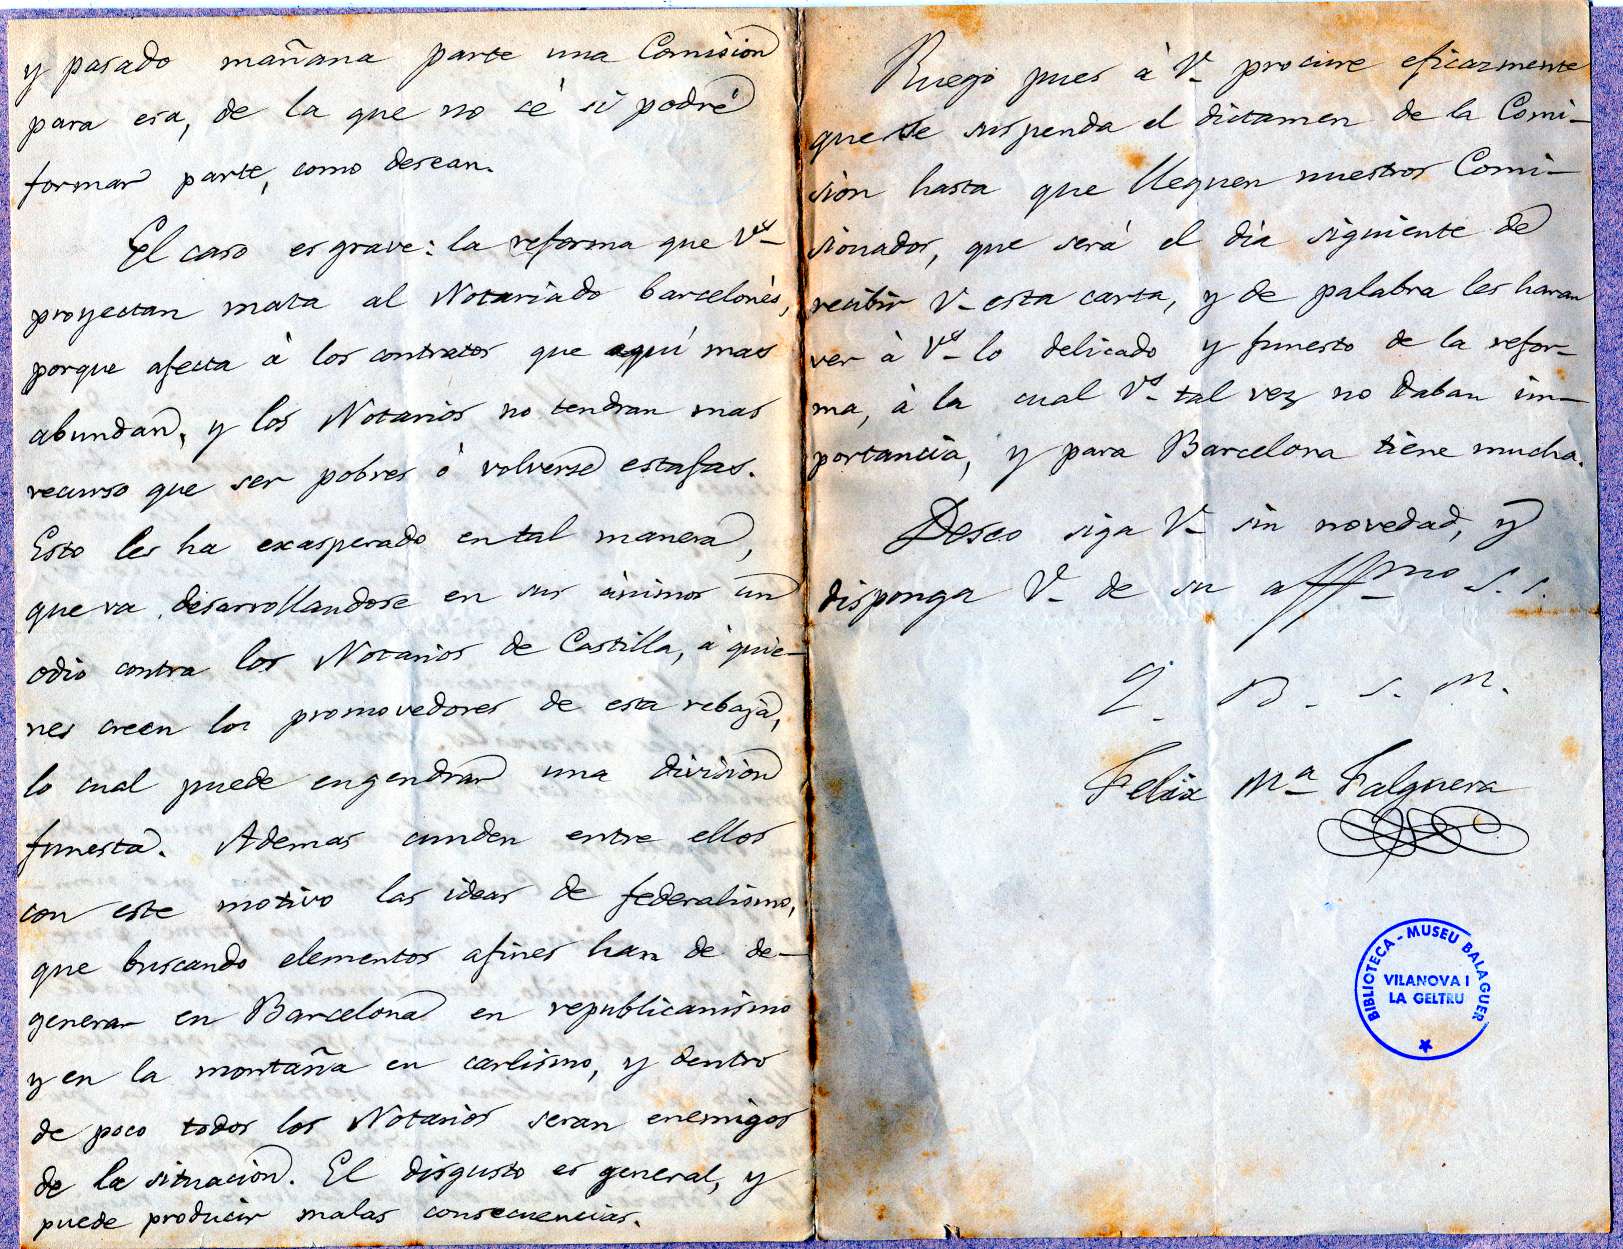 y pasado mañana parte una Comision
para esa, de la que no sé si podré
formar parte, como desean.
El caso es grave: la reforma que Vs
proyectan mata al Notariado barcelonés,
porque afecta à los contratos que aquí mas
abundan, y los Notarios no tendran mas
recurso que ser pobres ó volverse estafas.
Esto les ha exasperado en tal manera,
que va desarrollandose en sus ánimos un
odio contra los Notarios de Castilla, á quie-
nes creen los promovedores de esta rebaja,
lo cual puede engendrar una division
funesta. Ademas cunden entre ellos
con este motivo las ideas de federalismo,
que buscando elementos afines han de de-
generar en Barcelona en republicanismo
y en la montaña en carlismo, y dentro
de poco todos los Notarios seran enemigos
de la situacion. El disgusto es general, y
puede producir malas consecuencias.
Ruego pues à V. procure eficazmente
que se suspenda el dictamen de la Comi-
sion hasta que lleguen nuestros Comi-
sionados, que será el dia siguiente de
recibir V. esta carta, y de palabra les haran
ver à Vs lo delicado y funesto de la refor-
ma, à la cual Vs tal vez no daban im-
portancia, y para Barcelona tiene mucha.
Deseo siga V. sin novedad, y
disponga V. de su affmo S. S.
Q. B. S. M.
Felix Mª Falguera
BIBLIOTECA - MUSEU BALAGUER
VILANOVA I
LA GELTRU